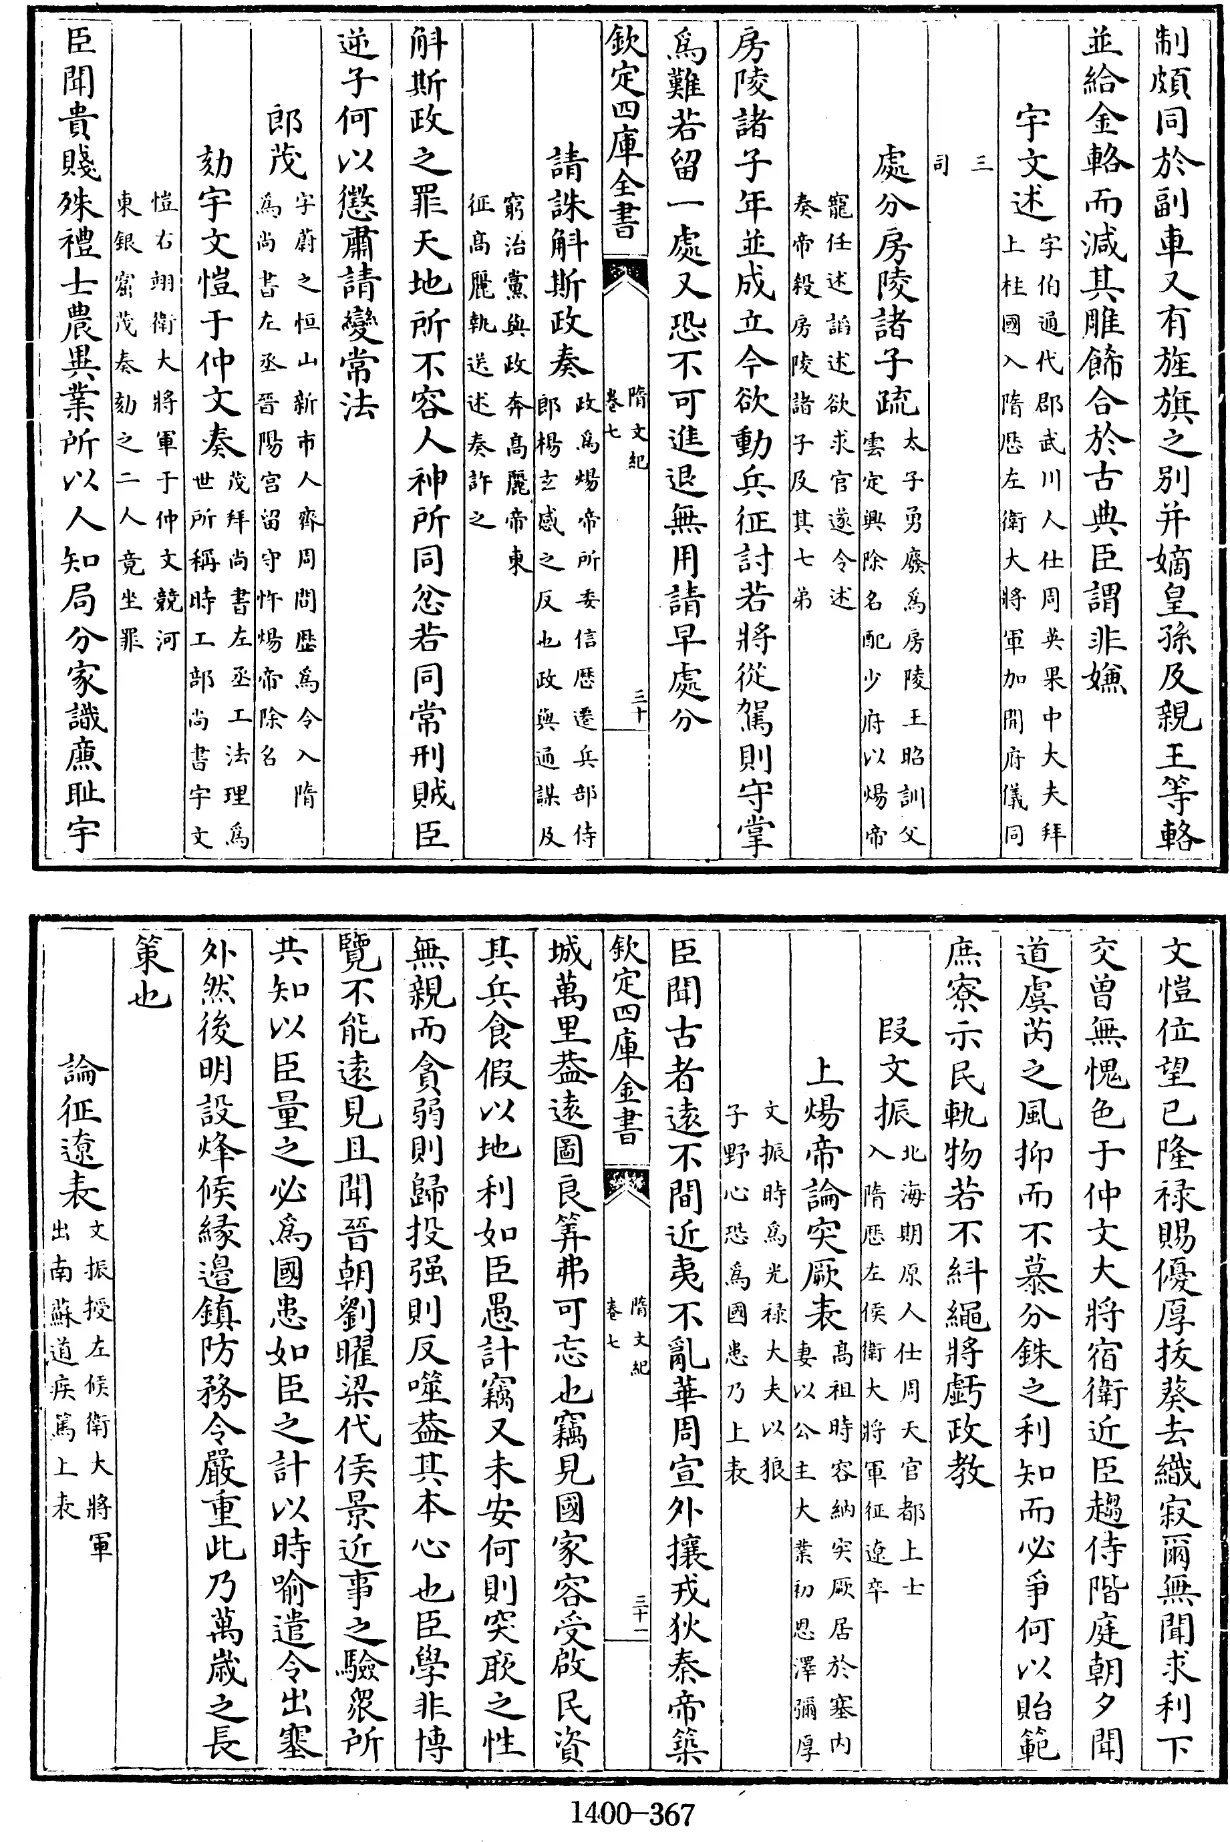 制頗同於副車又有旌旗之别并嫡皇孫及親王等輅
並給金輅而減其雕飾合於古典臣謂非嫌
宇文述字伯通代郡武川人仕周英果中大夫拜
上柱國入隋歴左衛大將軍加開府儀同
三
司
處分房陵諸子疏太子勇廢為房陵王昭訓父
雲定興除名配少府以煬帝
寵任述謟述欲求官遂令述
奏帝殺房陵諸子及其七弟
房陵諸子年並成立今欲動兵征討若將從駕則守掌
為難若留一處又恐不可進退無用請早處分
欽定四庫全書
隋文紀
卷七
三十
請誅斛斯政奏政為煬帝所委信歴遷兵部侍
郎楊玄感之反也政與通謀及
窮治黨與政奔高麗帝東
征高麗執送述奏許之
斛斯政之罪天地所不容人神所同忿若同常刑賊臣
逆子何以懲肅請變常法
郎茂字蔚之恒山新市人齊周間歴為令入隋
為尚書左丞晉陽宮留守忤煬帝除名
劾宇文愷于仲文奏茂拜尚書左丞工法理為
世所稱時工部尚書宇文
愷右翊衛大將軍于仲文競河
東銀窟茂奏劾之二人竟坐罪
臣聞貴賤殊禮士農異業所以人知局分家識廉耻宇
文愷位望已隆禄賜優厚拔葵去織寂爾無聞求利下
交曾無愧色于仲文大將宿衛近臣趨侍階庭朝夕聞
道虞芮之風抑而不慕分銖之利知而必爭何以貽範
庶寮示民軌物若不糾繩將虧政教
段文振北海期原人仕周天官都上士
入隋歴左侯衛大將軍征遼卒
上煬帝論突厥表高祖時容納突厥居於塞内
妻以公主大業初恩澤彌厚
文振時為光禄大夫以狼
子野心恐為國患乃上表
臣聞古者遠不間近夷不亂華周宣外攘戎狄秦帝築
欽定四庫全書
隋文紀
卷七
三十一
城萬里葢遠圖良筭弗可忘也竊見國家容受啟民資
其兵食假以地利如臣愚計竊又未安何則突厥之性
無親而貪弱則歸投强則反噬葢其本心也臣學非博
覽不能遠見且聞晉朝劉曜梁代侯景近事之驗衆所
共知以臣量之必為國患如臣之計以時喻遣令出塞
外然後明設烽候緣邊鎮防務令嚴重此乃萬歲之長
策也
論征遼表文振授左候衛大將軍
出南蘇道疾篤上表
1400-367